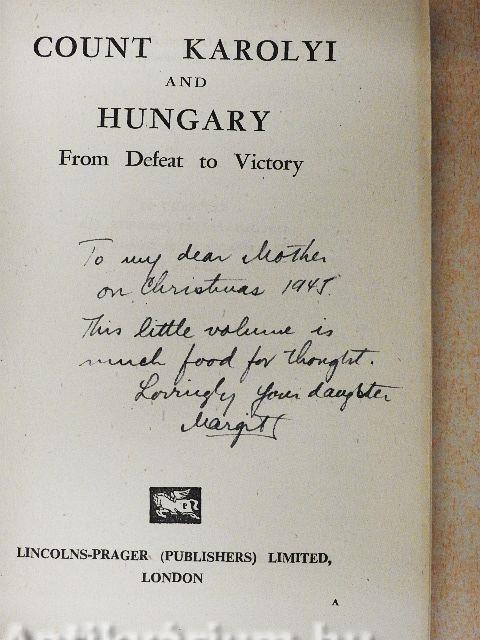 COUNT KAROLYI
AND
HUNGARY
From Defeat to Victory
To my dear Mother
on Christmas 1945.
This little volume is
much food for thought.
Lovingly your daughter
Margit
LINCOLNS-PRAGER (PUBLISHERS) LIMITED,
LONDON
A
Antikvárium.hu